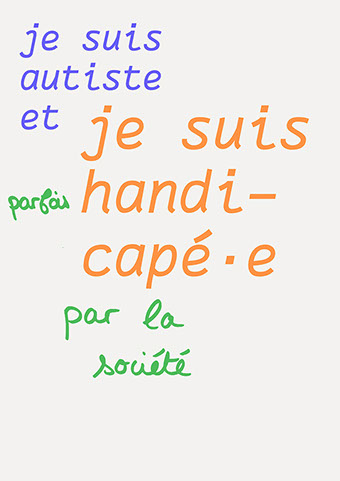 je suis
autiste
et
je suis
parfois handi-
capé·e
par la
société